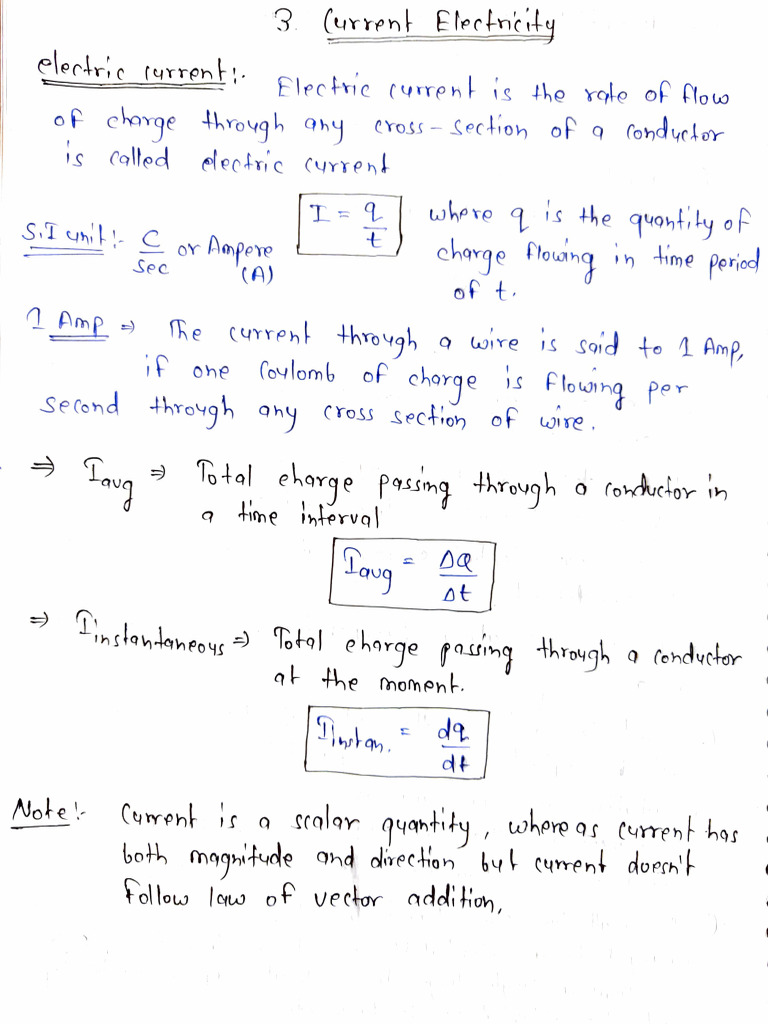 3. Current Electricity
electric current:- Electric current is the rate of flow
of charge through any cross-section of a conductor
is called electric current
I = q/t where q is the quantity of
S.I unit:- C/sec or Ampere (A) charge flowing in time period
of t.
1 Amp ⇒ The current through a wire is said to 1 Amp,
if one Coulomb of charge is flowing per
second through any cross section of wire.
⇒ Iavg ⇒ Total charge passing through a conductor in
a time interval
Iavg = ΔQ/Δt
⇒ Iinstantaneous ⇒ Total charge passing through a conductor
at the moment.
Iinstan. = dq/dt
Note:- Current is a scalar quantity, where as current has
both magnitude and direction but current doesn't
follow law of vector addition,